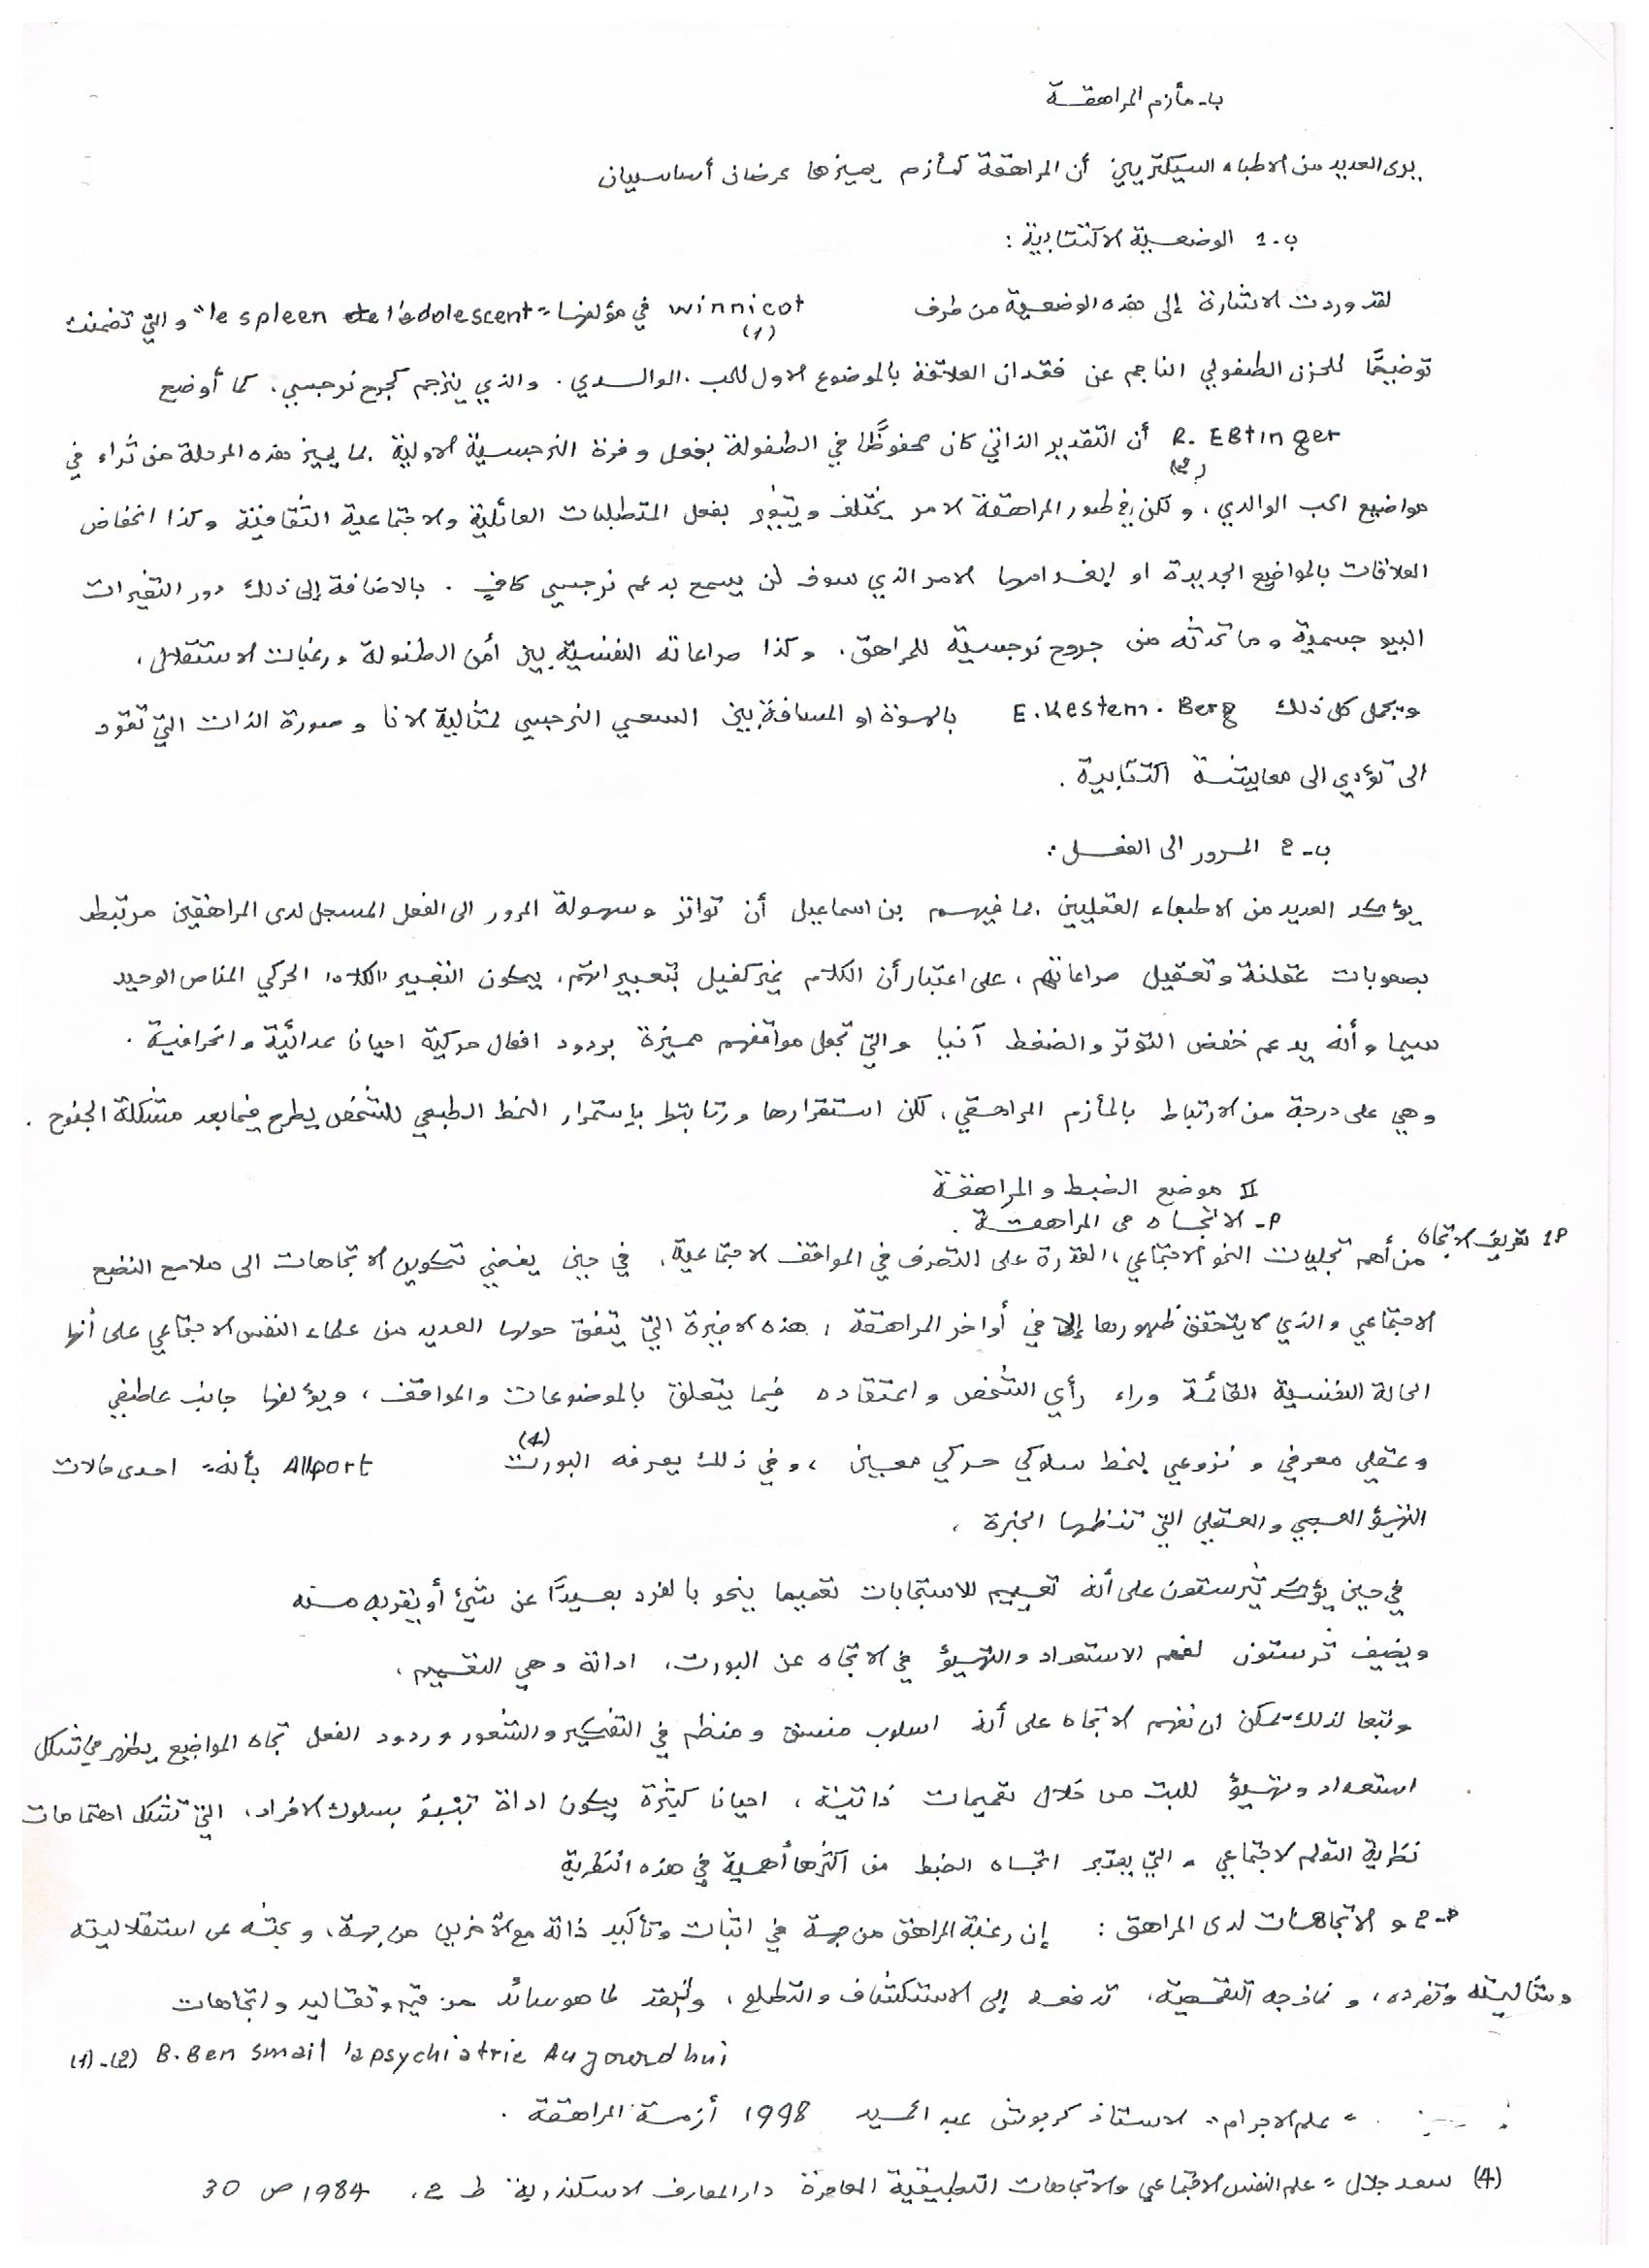 ب- مأزم المراهقة
يرى العديد من الاطباء السيكتريين أن المراهقة كمأزم يميزها عرضان أساسيان
ب-1 الوضعية الاكتئابية :
لقد وردت الاشارة إلى هذه الوضعية من طرف winnicot (1) في مؤلفها "le spleen de l'adolescent" والتي تضمنت
توضيحًا للحزن الطفولي الناجم عن فقدان العلاقة بالموضوع الاول للحب . الوالدي . والذي يترجم كجرح نرجسي . كما أوضح
R. EBtinger (2) أن التقدير الذاتي كان محفوظًا في الطفولة بفعل وفرة النرجسية الاولية بما يميز هذه المرحلة من ثراء في
مواضيع الحب الوالدي ، ولكن في طور المراهقة الامر يختلف ويتغير بفعل المتطلبات العائلية والاجتماعية الثقافية وكذا انخفاض
العلاقات بالمواضيع الجديدة او إنعدامها الامر الذي سوف لن يسمح بدعم نرجسي كافي . بالاضافة إلى ذلك دور التغيرات
البيو جسمية وما تحدثه من جروح نرجسية للمراهق . وكذا صراعاته النفسية بين أمن الطفولة ورغبات الاستقلال ،
ويجمل كل ذلك E. Kestem. Berg بالهوة او المسافة بين السعي النرجسي لمثالية الانا وصورة الذات التي تقود
الى تؤدي الى معايشة اكتئابية .
ب-2 المرور الى الفعل :
يؤكد العديد من الاطباء العقليين بما فيهم بن اسماعيل أن تواتر وسهولة المرور الى الفعل المسجل لدى المراهقين مرتبط
بصعوبات عقلنة وتعقيل صراعاتهم ، على اعتبار أن الكلام غير كفيل بتعبيراتهم ، يكون التعبير الحركي المناص الوحيد
سيما وأنه يدعم خفض التوتر والضغط آنيا والتي تجعل مواقفهم مميزة بردود افعال حركية احيانا عدائية وانحرافية .
وهي على درجة من الارتباط بالمأزم المراهقي ، لكن استقرارها ورتابتها بإستمرار النمط الطبعي للشخص يطرح فيما بعد مشكلة الجنوح .
II موضع الضبط والمراهقة
P- الاتجاه في المراهقة .
1P تعريف الاتجاه
من أهم تجليات النمو الاجتماعي ، القدرة على التصرف في المواقف الاجتماعية . في حين يفضي تكوين الاتجاهات الى ملامح النضج
الاجتماعي والذي لا يتحقق ظهورها إلا في أواخر المراهقة ، هذه الاخيرة التي يتفق حولها العديد من علماء النفس الاجتماعي على أنها
الحالة النفسية القائمة وراء رأي الشخص واعتقاده فيما يتعلق بالموضوعات والمواقف ، ويؤلفها جانب عاطفي
وعقلي معرفي و نزوعي بنمط سلوكي حركي معين ، وفي ذلك يعرفه البورت (4) Allport بأنه " احدى حالات
التهيؤ العصبي والعقلي التي تنظمها الخبرة ،
في حين يؤكد ثرستون على أنه تعميم للاستجابات تعميما ينحو بالفرد بعيدًا عن شيئ أو يقربه منه
ويضيف ثرستون لفهم الاستعداد والتهيؤ في الاتجاه عن البورت ، اداة وهي التعميم .
وتبعا لذلك يمكن ان نفهم الاتجاه على أنه اسلوب منسق ومنظم في التفكير والشعور وردود الفعل تجاه المواضيع يظهر في شكل
استعداد وتهيؤ للبت من خلال تعميمات ذاتية ، احيانا كثيرة يكون اداة تنبؤ بسلوك الافراد ، التي تشكل اهتمامات
نظرية التعلم الاجتماعي والتي يعتبر اتجاه الضبط من أكثرها أهمية في هذه النظرية
P-2 و الاتجاهات لدى المراهق : إن رغبة المراهق من جهة في اثبات وتأكيد ذاته مع الآخرين من جهة ، وبحثه عن استقلاليته
ومثاليته وتفرده ، ونماذجه التقمصية ، تدفعه إلى الاستكشاف والتطلع ، والنقد لما هو سائد من قيم وتقاليد واتجاهات
(1)-(2) B. Ben smail la psychiatrie Aujourd hui
" علم الاجرام " الاستاذ كربوش عبد الحميد 1998 أزمة المراهقة .
(4) سعد جلال " علم النفس الاجتماعي والاتجاهات التطبيقية المعاصرة دار المعارف الاسكندرية ط 2 . 1984 ص 30